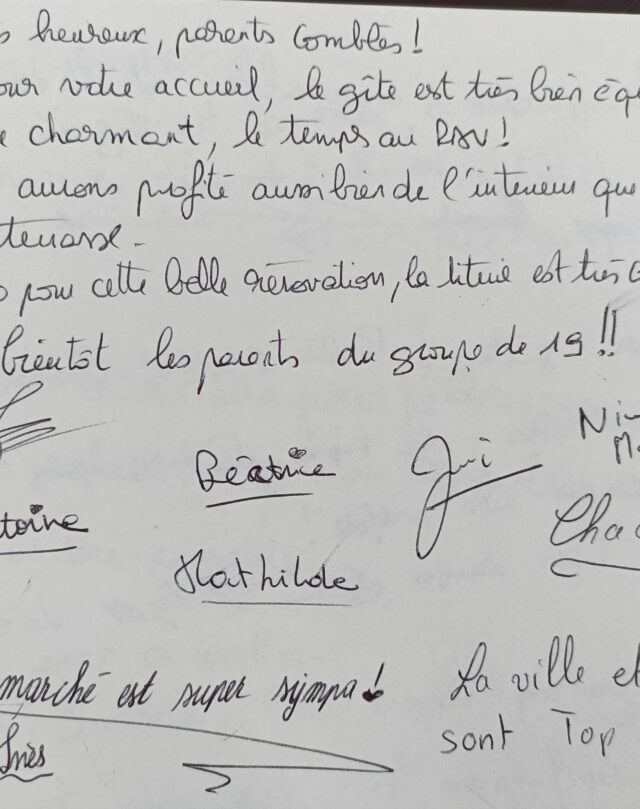 s heureux, parents comblés !
our votre accueil, le gîte est très bien équ
e charmant, le temps au RDV !
aurons profité aussi bien de l'intérieur que
terrasse.
pour cette belle rénovation, la literie est très
bientôt les parents du groupe de 19 !!
Béatrice
toine
Mathilde
Cha
marché est super sympa !
Inès
La ville et
sont Top